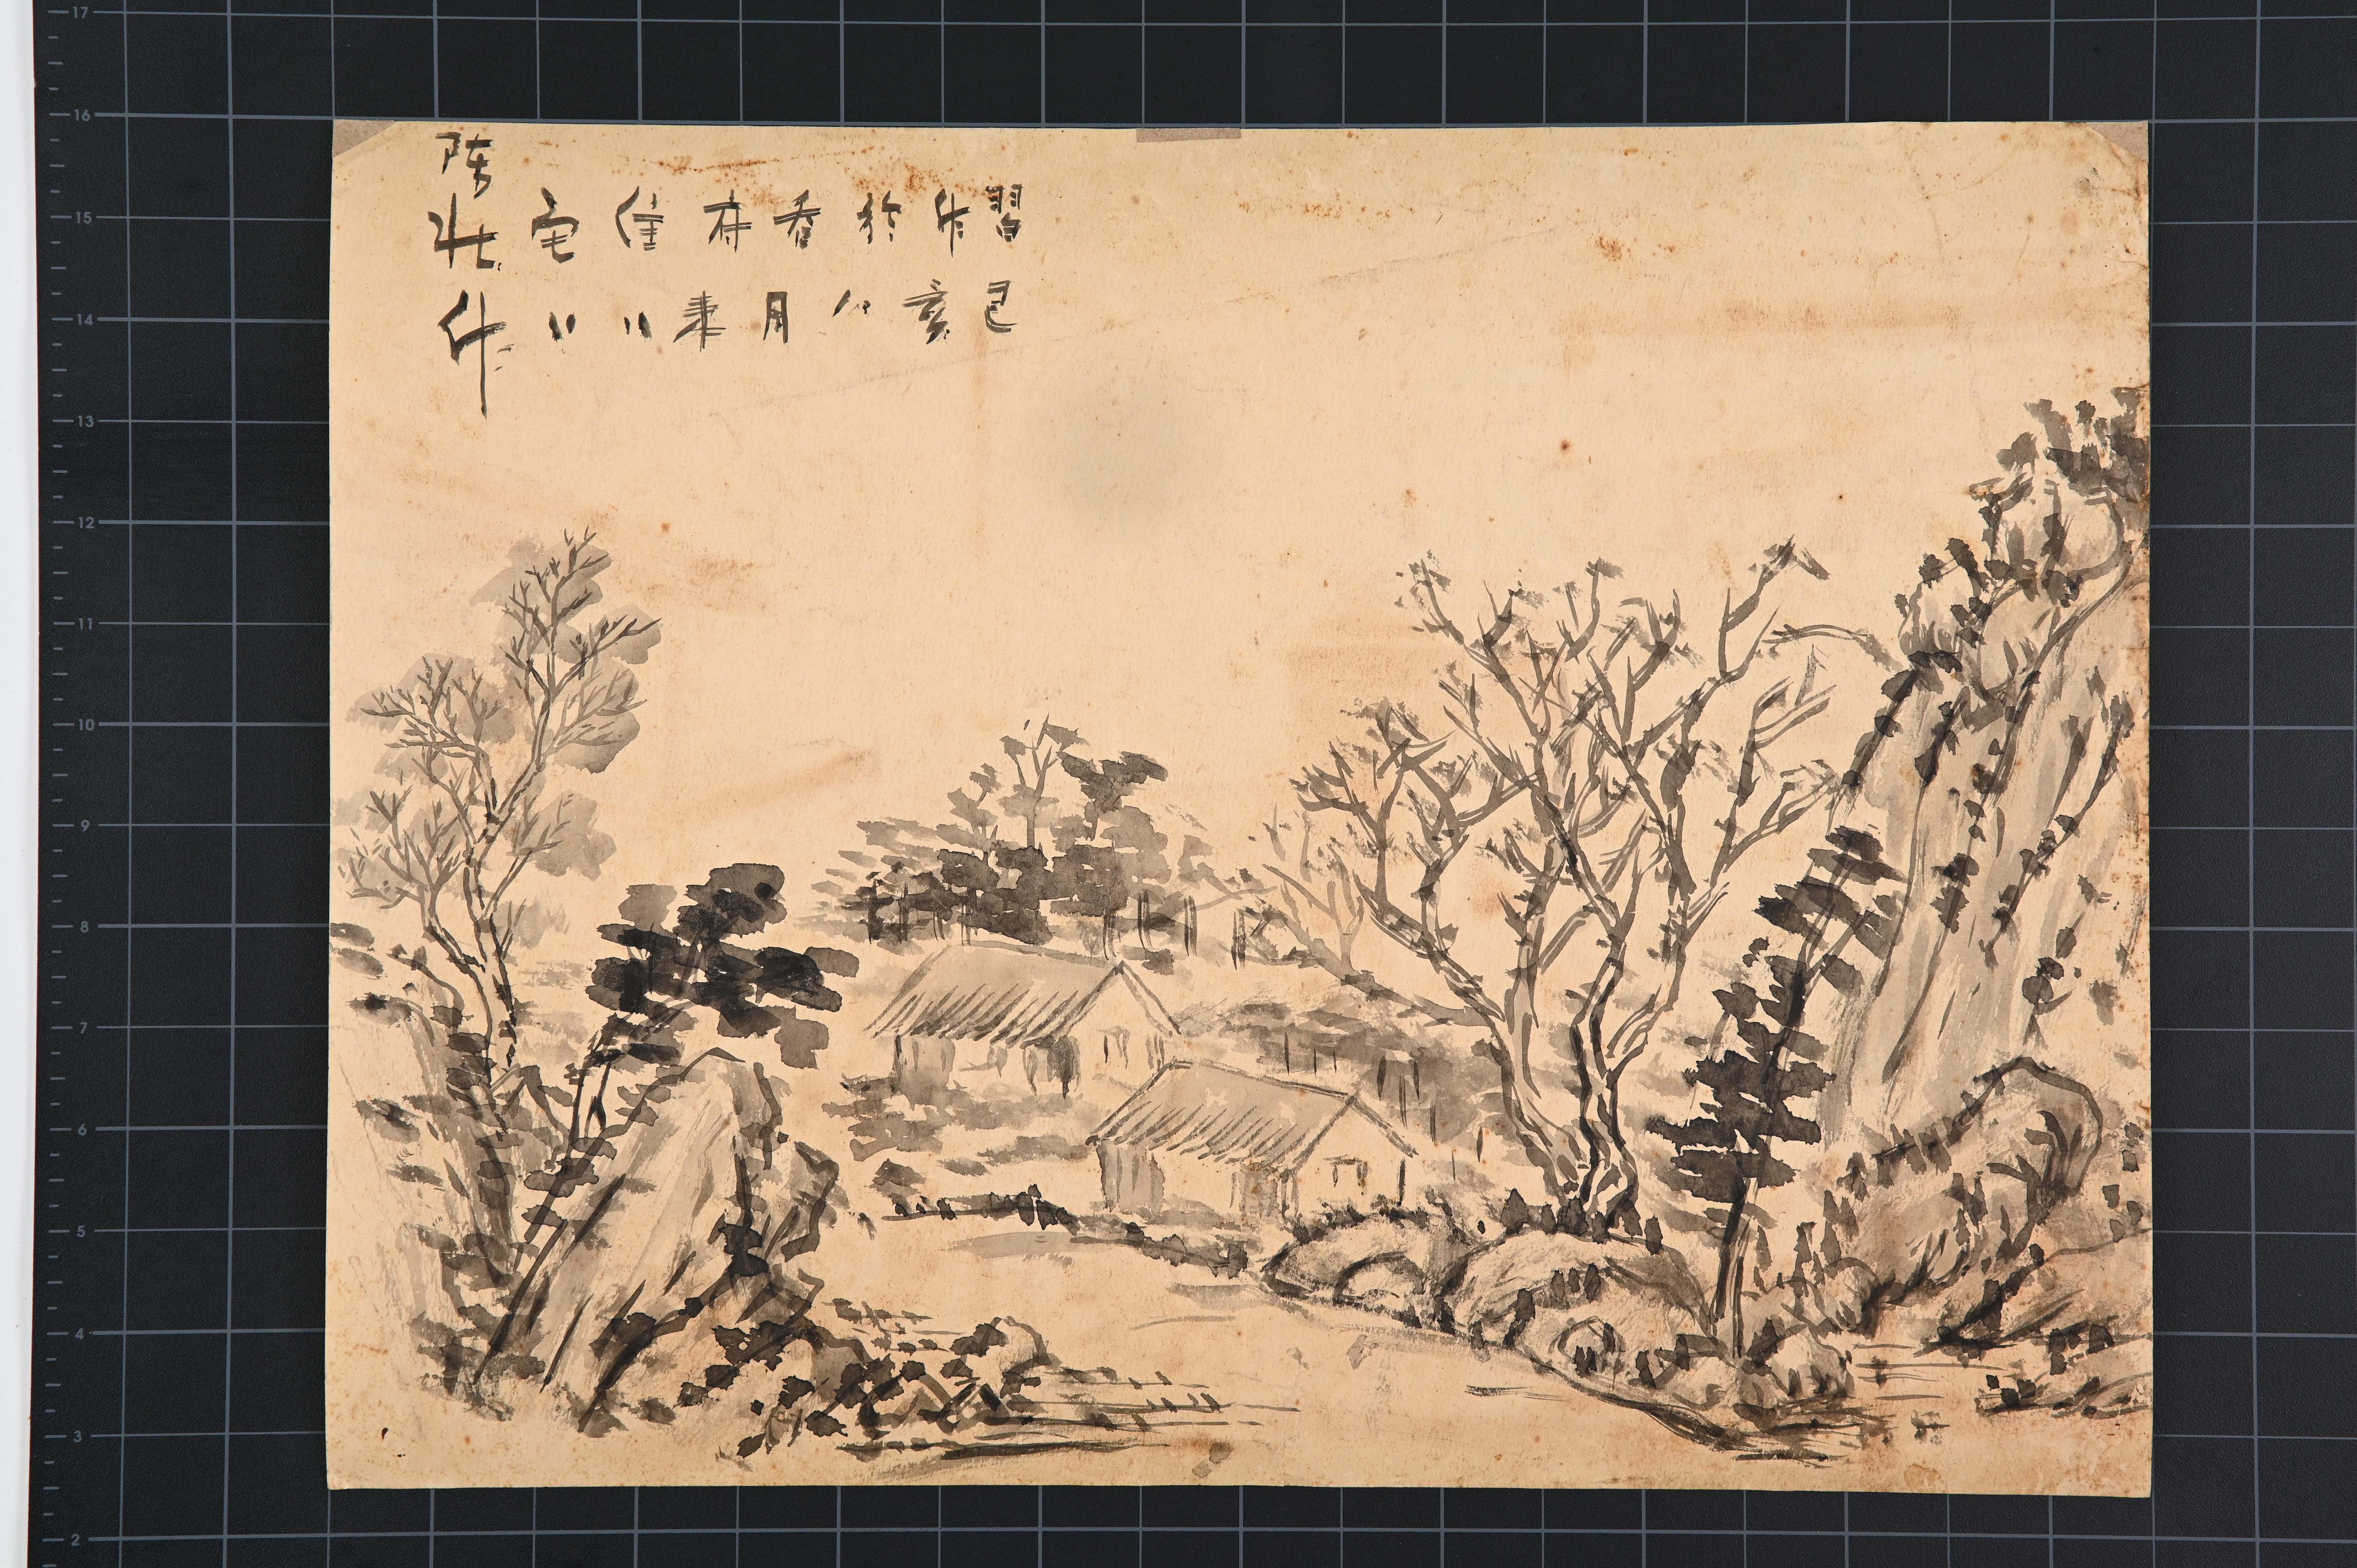 習作於香住宅
己亥八月
陈壮作
17
16
15
14
13
12
11
10
9
8
7
6
5
4
3
2